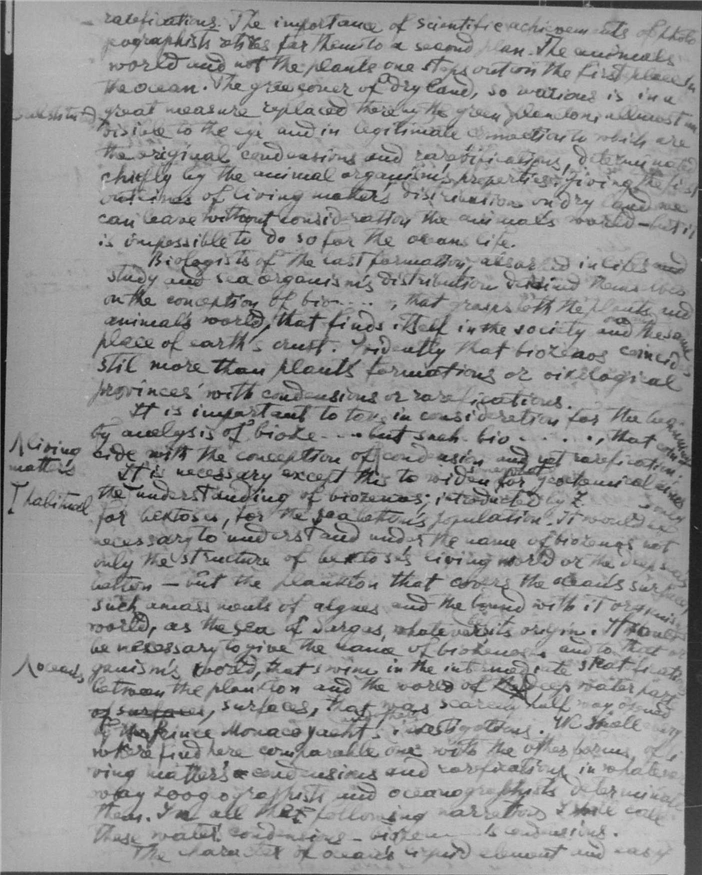 rarefications. The importance of scientific achievements of phyto
pographists retires for them to a second plan. The animals
world and not the plants one steps out on the first place in
the ocean. The green cover of dry land, so various is in a
great measure replaced there by the green plancton, allmost in
visible to the eye and in legitimate connection to which are
the original condensions and rarefications, determinated
chiefly by the animal organism's properties. Giving the first
outlines of living matter's distribution on dry land we
can leave without consideration the animals world — but it
is impossible to do so for the oceans life.
Biologists of the last formation, absorbed in life and
study and sea organism's distribution themselves
on the conception of bio- . . . . , that grasps both the plants and
animal's world, that finds itself in the society and the same
place of earth's crust. Evidently that biozenos coincides
stil more than plants formations or oikological
provinces with condensions or rarefications.
It is important to take in consideration for the beginning
by analysis of bioke- . . . but such bio . . . . . , that
cide with the conception of condension and yet rarefication;
living
matter's
It is necessary except this to widen for geochemical aims
the understanding of biozenos; introduced by
habitual
for bentosis, for the sea bottom's population. It would be
necessary to understand under the name of biozenos not
only the structure of bentosis living world or the deep sea's
bottom — but the plankton that covers the ocean's surface,
such amassments of algues and the bound with it organism
world, as the sea of Sargas, whatever its origin. It
be necessary to give the name of biokenosis and to that or
ganism's world, that swim in the intermediate stratification
oceans
between the plankton and the world of the deep water part
of surfaces, surfaces, that was scarcely half way opened
by the Prince Monaco and their investigations. We shall every
where find here comparable one with the other forms of li
ving matter's condensions and rarefications in whatever
way zoogeographists and oceanographists determinate
them. In all the following narrations I shall call
these water condensions — bioken s condensions.
The character of ocean's liquid element and easy